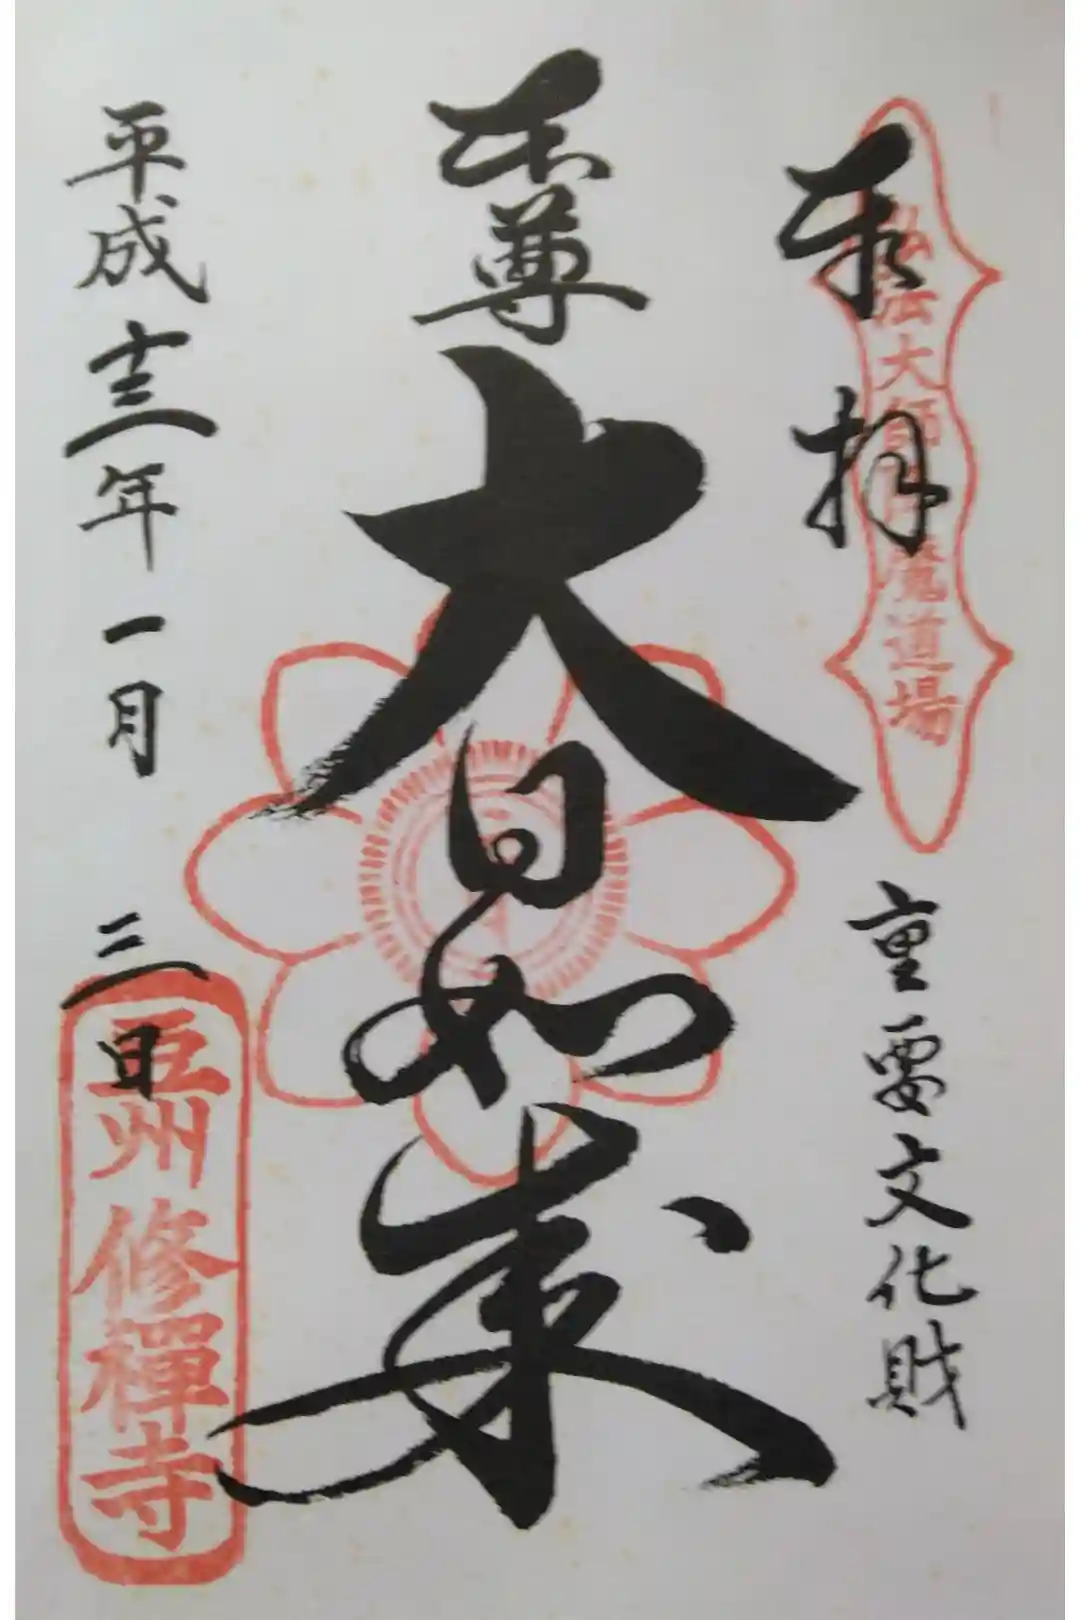 奉拝
弘法大師降魔道場
重要文化財
本尊
大日如来
平成十三年一月三日
豆州修禪寺